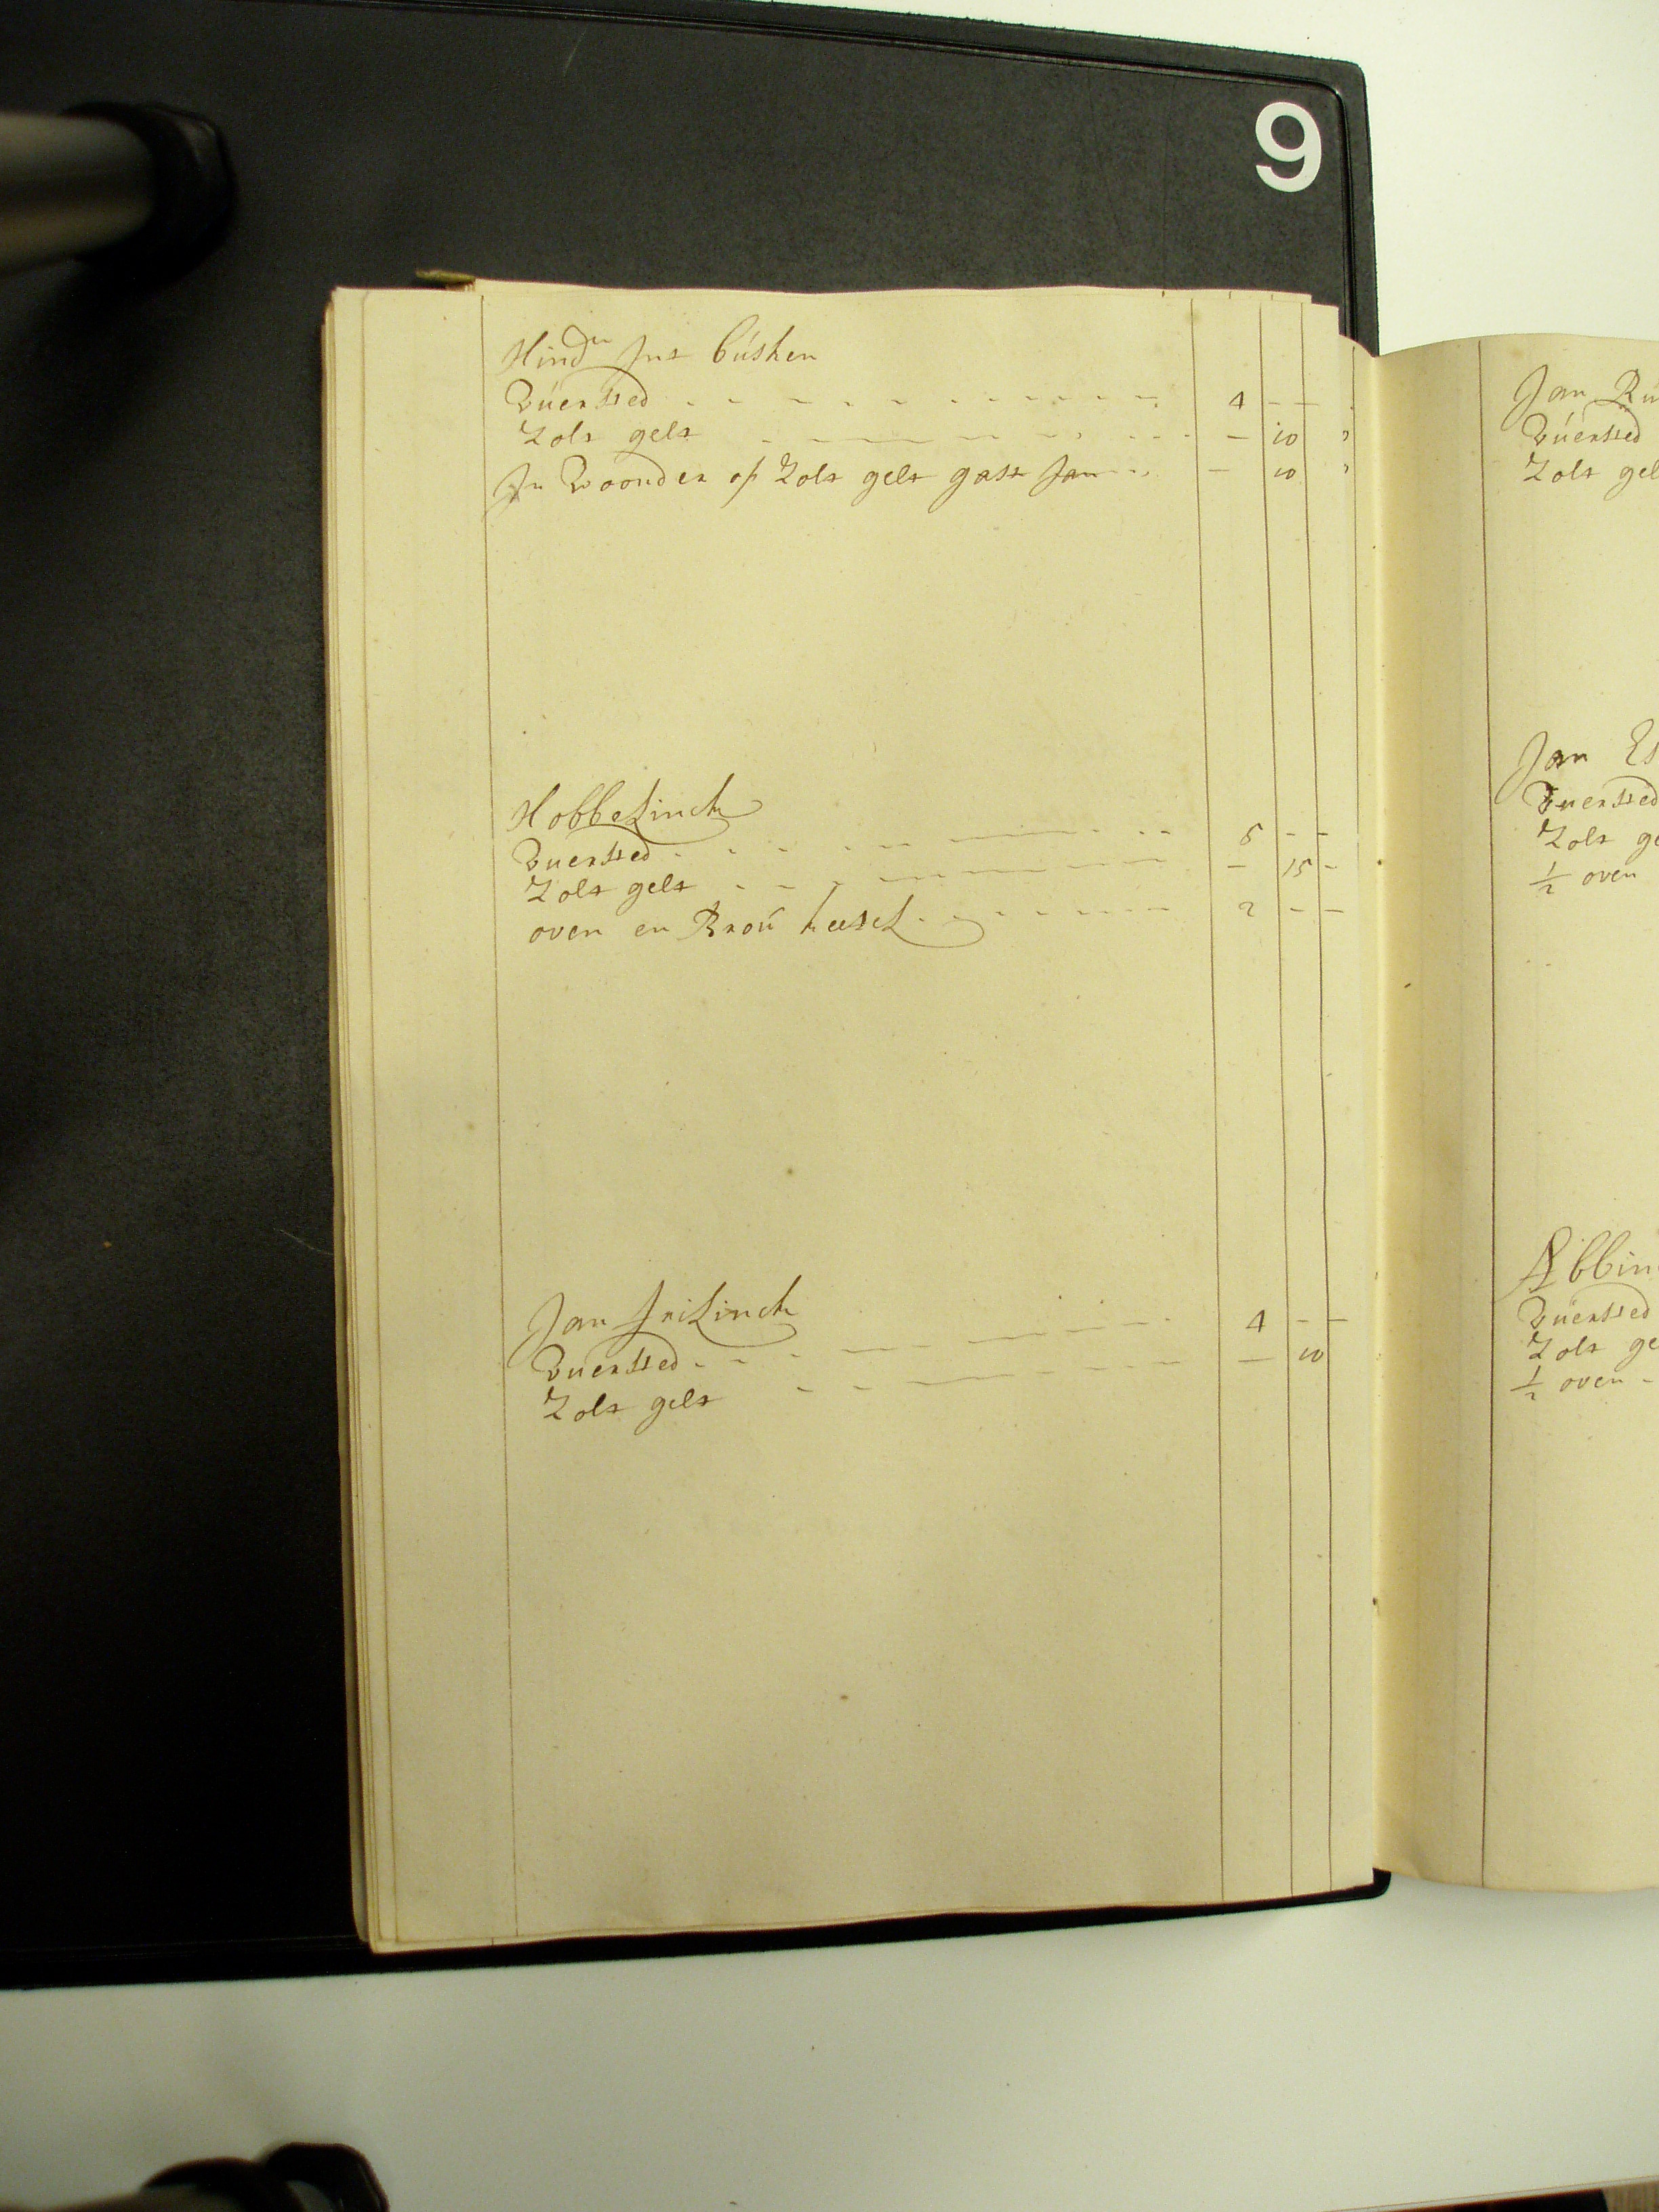 9
Hindr Jut Búsken
Vúersted 4 - -
Zolt gelt - 10
In Woonder op Zolt gelt gast Jan - 10
Hobbelinck
Vuersted 5 - -
Zolt gelt - 15 -
oven en Broú keetel 2 - -
Jan Frilinck
Vuersted 4 - -
Zolt gelt - 10
Jan
Vúersted
Zolt gel
Jan Es
Vuersted
Zolt ge
1/2 oven
Abbin
Vúersted
Zolt ge
1/2 oven